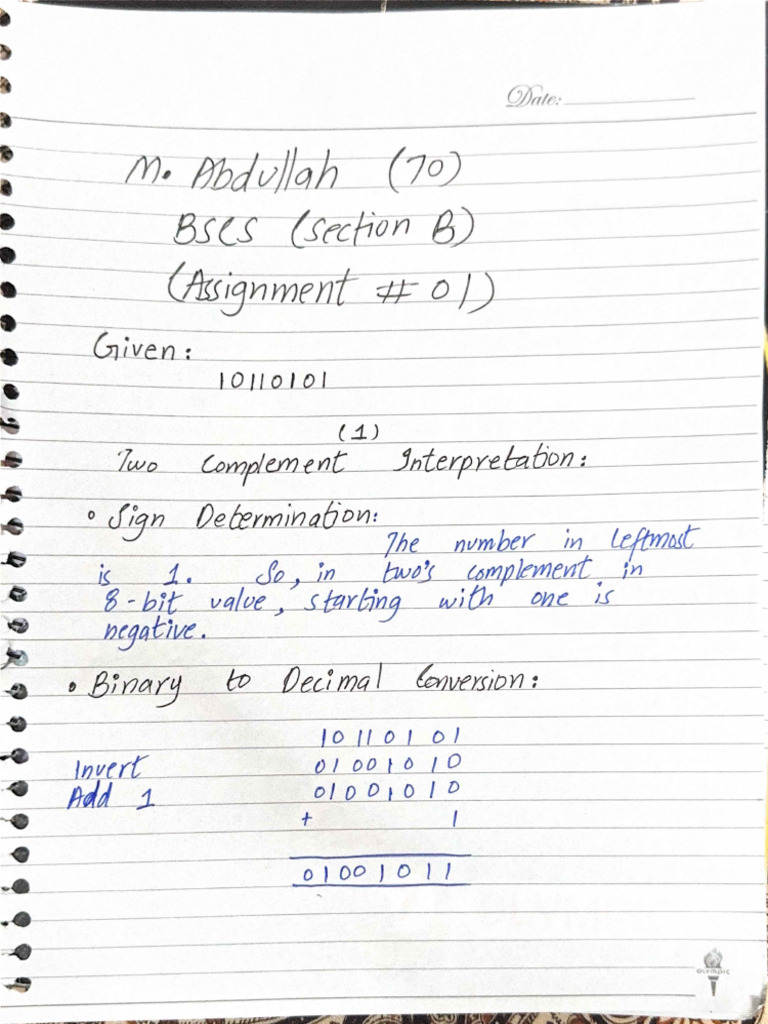 Date:
M. Abdullah (70)
BSCS (section B)
(Assignment # 01)
Given:
10110101
(1)
Two Complement Interpretation:
• Sign Determination:
The number in leftmost
is 1. So, in two's complement in
8-bit value, starting with one is
negative.
• Binary to Decimal Conversion:
10110101
Invert 01001010
Add 1 01001010
+ 1
01001011
OLYMPIC